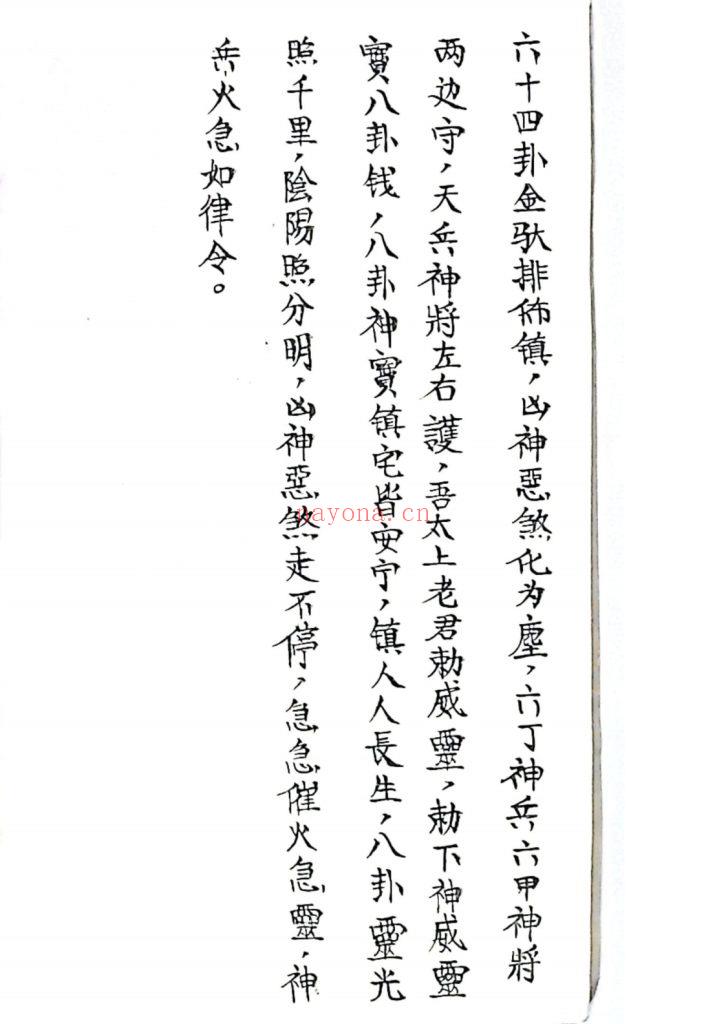 六十四卦金馱排佈镇，凶神惡煞化为塵，六丁神兵六甲神將
两边守，天兵神將左右護，吾太上老君勅威靈，勅下神威靈
寶八卦钱，八卦神寶镇宅皆安宁，镇人人長生，八卦靈光
照千里，陰陽照分明，凶神惡煞走不停，急急催火急靈，神
兵火急如律令。
nayona.cn